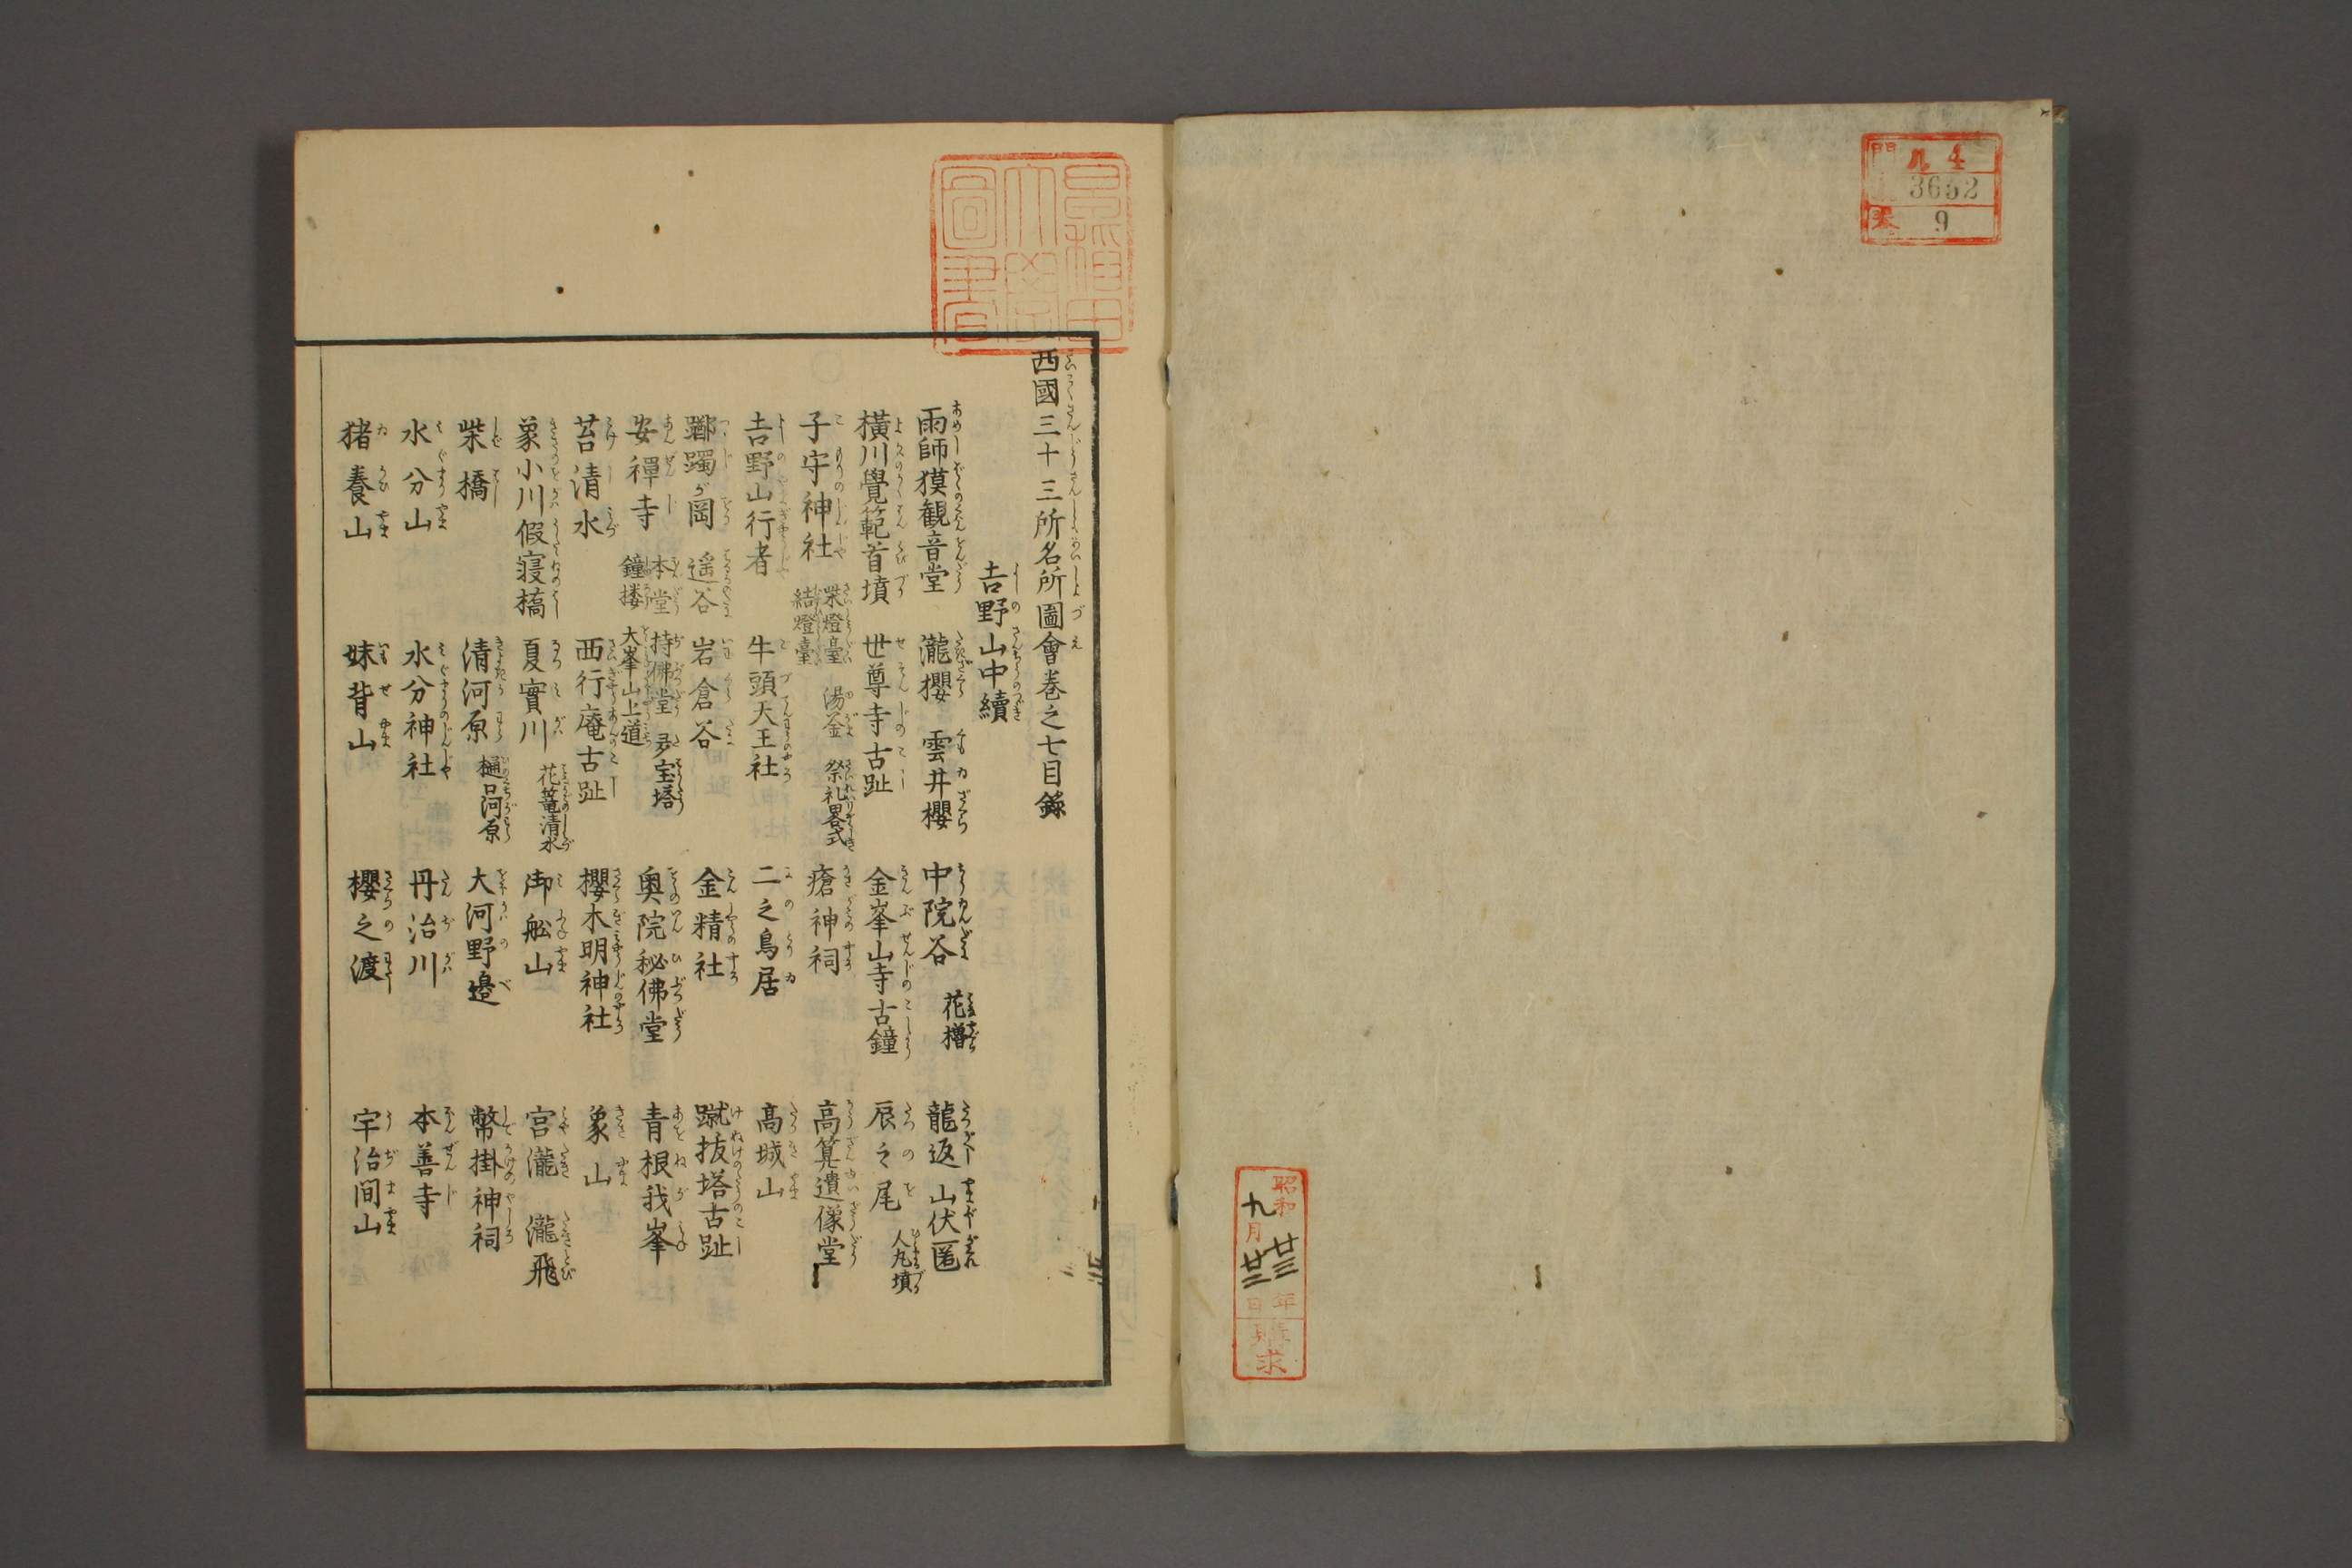 門 ル 4
3652
巻 9
昭和廿三年
九月廿三日
購求
早稲田
大學
圖書
西國三十三所名所圖會巻之七目録
吉野山中續
雨師獏観音堂 瀧櫻 雲井櫻 中院谷 花櫓 龍返 山伏匿
横川覺範首墳 世尊寺古趾 金峯山寺古鐘 辰之尾 人丸墳
子守神社 柴燈臺 結燈臺 湯釜 祭礼畧式 瘡神祠 高算遺像堂
吉野山行者 牛頭天王社 二之鳥居 高城山
躑躅が岡 遥谷 岩倉谷 金精社 蹴抜塔古趾
安禪寺 本堂 鐘楼 持佛堂 多宝塔 大峯山上道 奥院秘佛堂 青根我峯
苔清水 西行庵古趾 櫻木明神社 象山
象小川假寝橋 夏實川 花篭清水 御舩山 宮瀧 瀧飛
柴橋 清河原 樋口河原 大河野邉 幣掛神祠
水分山 水分神社 丹治川 本善寺
猪養山 妹背山 櫻之渡 宇治間山